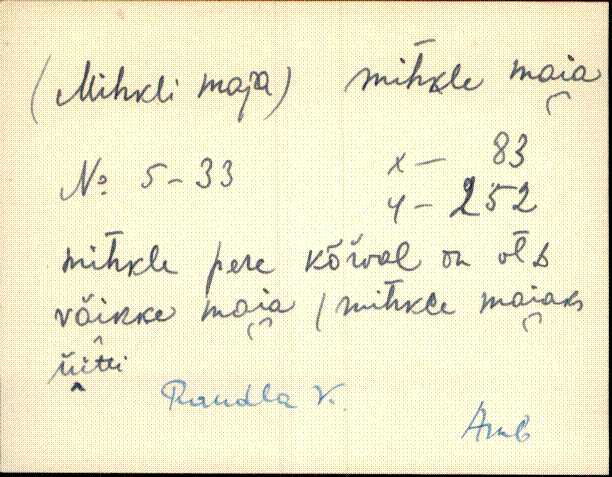 (Mihkli maja) mihkle maia
No 5-33 x - 83
y - 252
mihkle pere kõrval on old
väikke maia (mihkle maiaks
üitti
Raudla V.
Amb